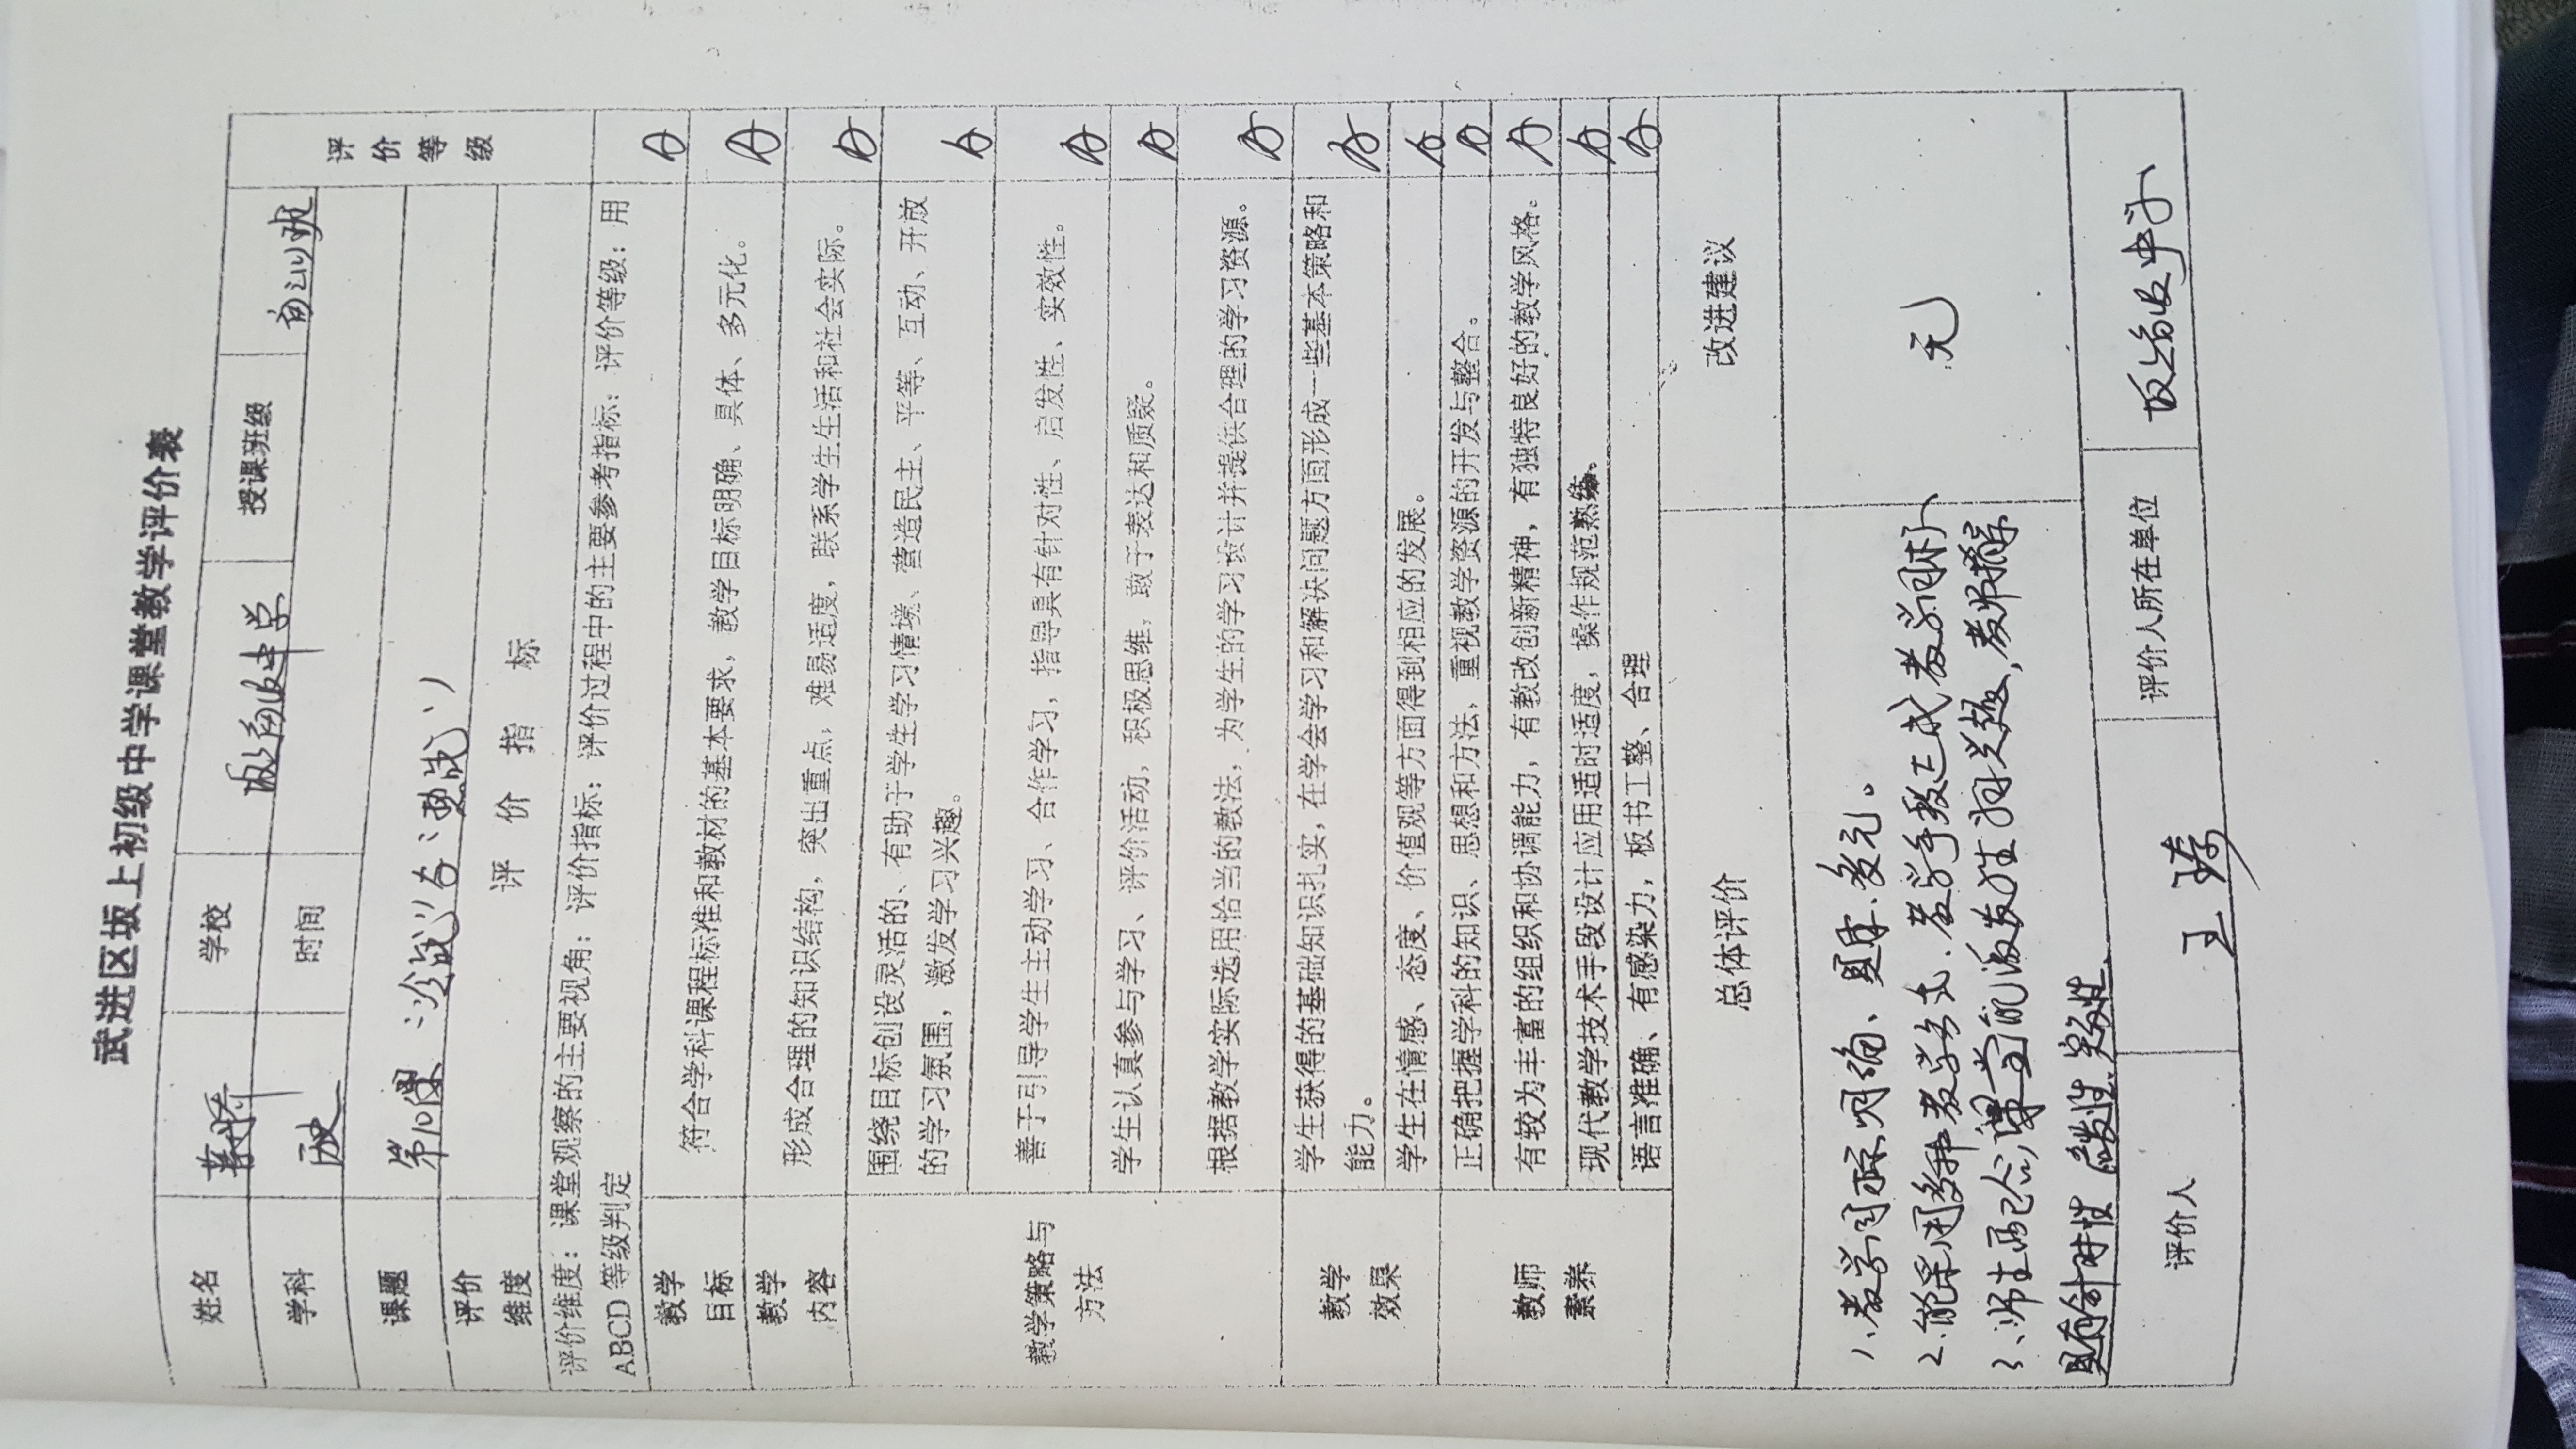 武进区坂上初级中学课堂教学评价表
姓名 学校 中学 授课班级 评价等级
学科 历史 时间
课题
评价维度 评价指标
评价维度：课堂观察的主要视角；评价指标：评价过程中的主要参考指标；评价等级：用
ABCD 等级判定
教学目标 符合学科课程标准和教材的基本要求，教学目标明确、具体、多元化。 A
教学内容 形成合理的知识结构，突出重点，难易适度，联系学生生活和社会实际。 A
教学策略与方法 围绕目标创设灵活的、有助于学生学习情境、营造民主、平等、互动、开放 A
的学习氛围，激发学习兴趣。
善于引导学生主动学习、合作学习，指导具有针对性、启发性、实效性。 A
学生认真参与学习、评价活动，积极思维，敢于表达和质疑。 A
根据教学实际选用恰当的教法，为学生的学习设计并提供合理的学习资源。 A
教学效果 学生获得的基础知识扎实，在学会学习和解决问题方面形成一些基本策略和 A
能力。
学生在情感、态度、价值观等方面得到相应的发展。 A
教师素养 正确把握学科的知识、思想和方法，重视教学资源的开发与整合。 A
有较为丰富的组织和协调能力，有教改创新精神，有独特良好的教学风格。 A
现代教学技术手段设计应用适时适度，操作规范熟练。 A
语言准确、有感染力，板书工整、合理 A
总体评价 改进建议
1、教学目标明确、具体、多元。 无
2、能采用多种教学方式、教学手段完成教学目标
3、师生配合，课堂能激发学生的兴趣，教师指导
具有针对性 启发性 实效性
评价人 王 评价人所在单位 坂上初级中学